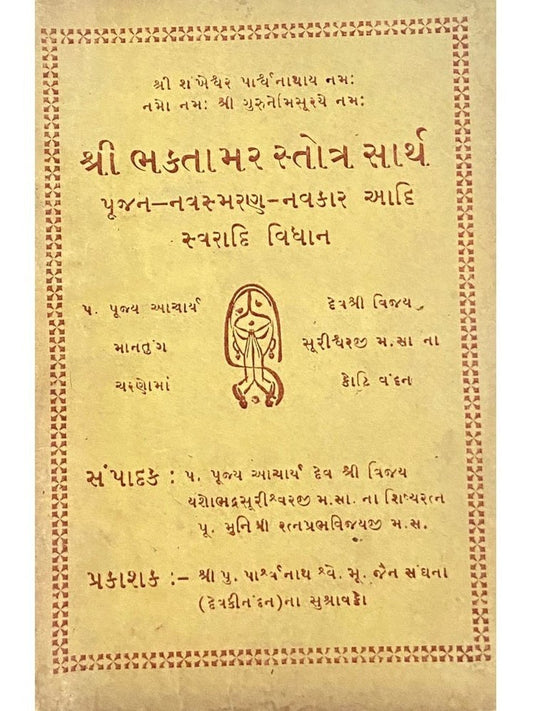 શ્રી શંખેશ્વર પાર્શ્વનાથાય નમઃ
નમો નમઃ શ્રી ગુરુનેમસૂરયે નમઃ
શ્રી ભક્તામર સ્તોત્ર સાર્થ
પૂજન–નવસ્મરણ–નવકાર આદિ
સ્વરાદિ વિધાન
પ. પૂજ્ય આચાર્ય દેવશ્રી વિજય
માનતુંગ સૂરીશ્વરજી મ.સા ના
ચરણોમાં કોટિ વંદન
સંપાદક : પ. પૂજ્ય આચાર્ય દેવ શ્રી વિજય
યશોભદ્રસૂરીશ્વરજી મ.સા. ના શિષ્યરત્ન
પૂ. મુનિશ્રી રત્નપ્રભવિજયજી મ.સ.
પ્રકાશક :– શ્રી પુ. પાર્શ્વનાથ શ્વે. મૂ. જૈન સંઘના
(દેવકીનંદન)ના સુશ્રાવકો